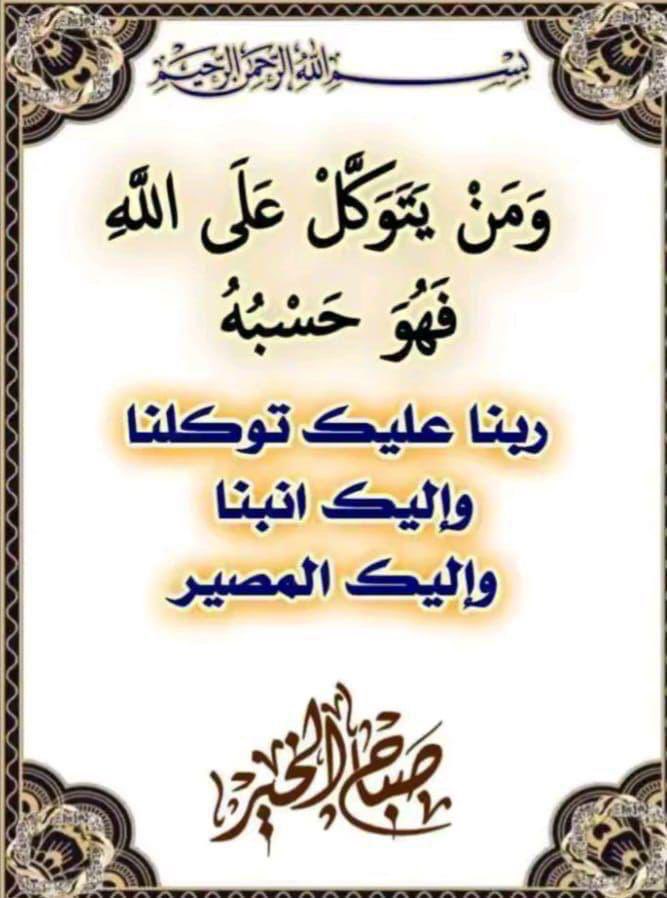 بِسْمِ اللهِ الرَّحْمَنِ الرَّحِيْمِ
وَمَنْ يَتَوَكَّلْ عَلَى اللَّهِ
فَهُوَ حَسْبُهُ
ربنا عليك توكلنا
وإليك انبنا
وإليك المصير
صباح الخير